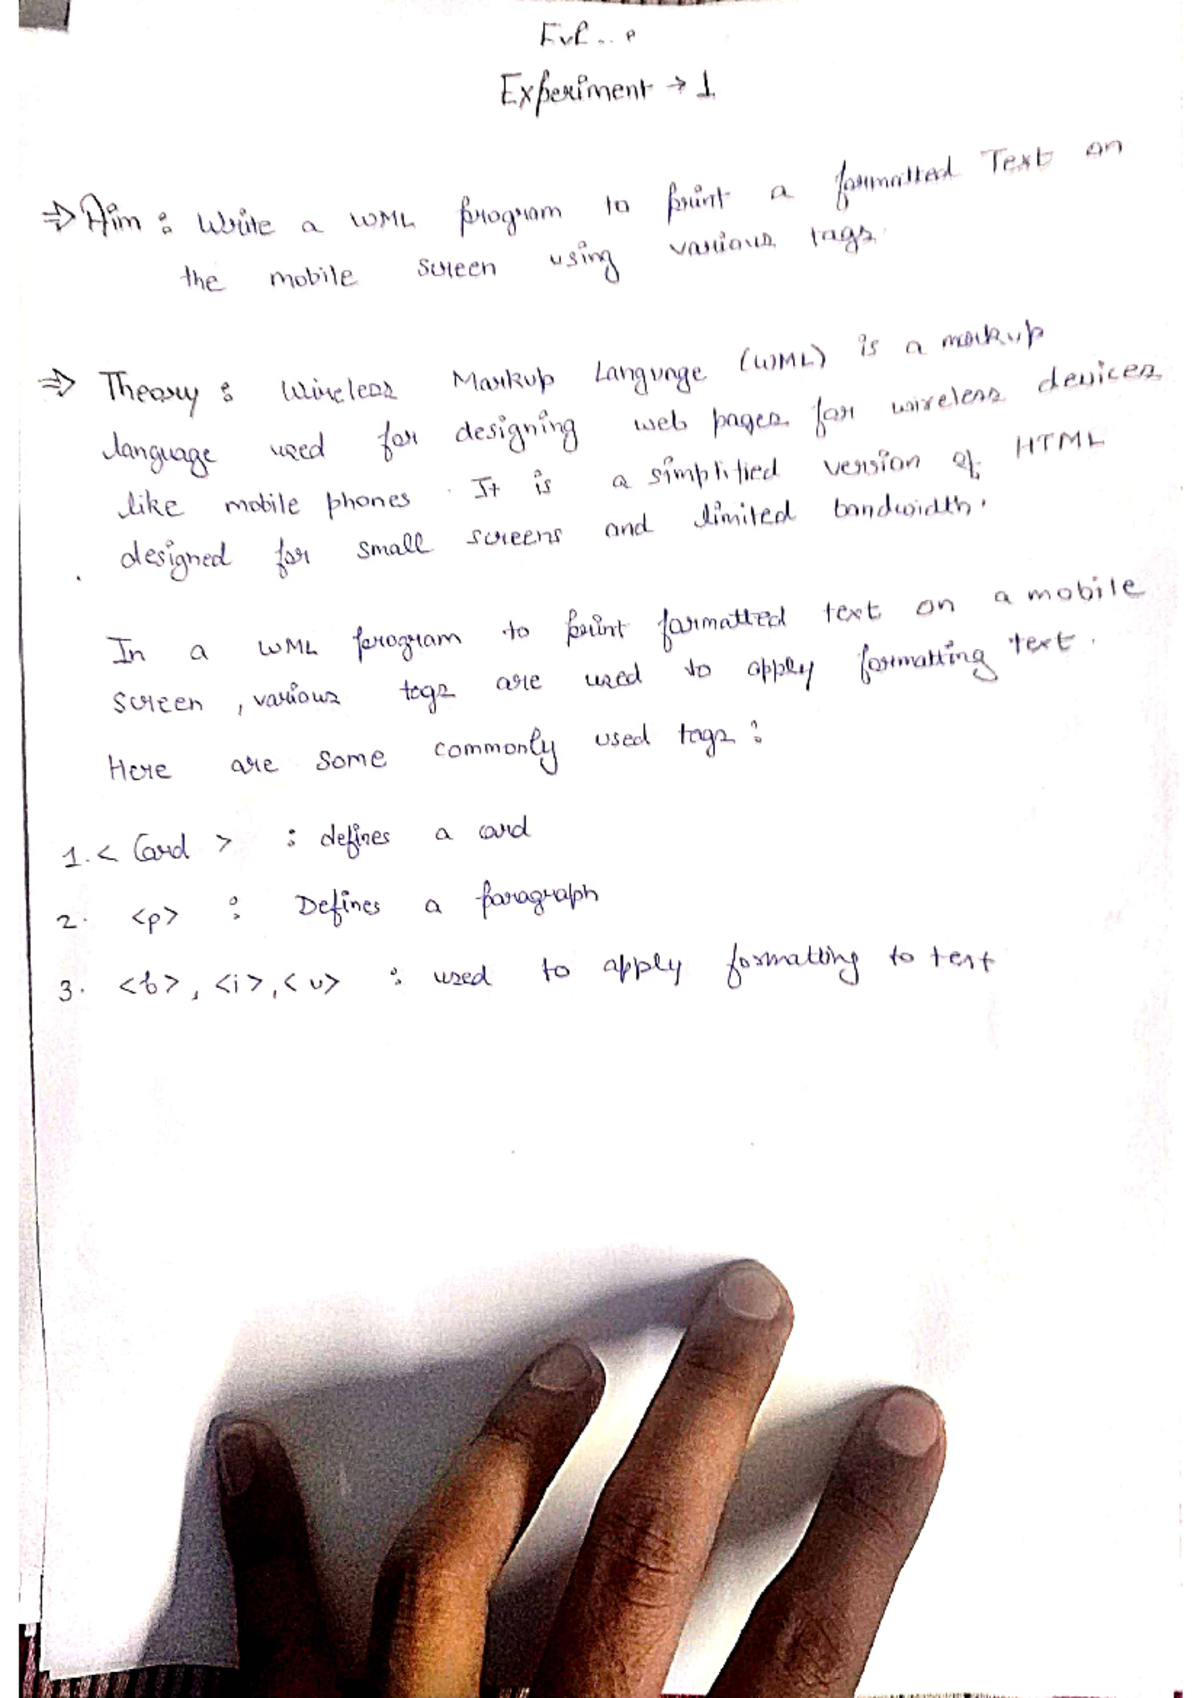 Experiment → 1
⇒ Aim : Write a WML program to print a formatted Text on
the mobile screen using various tags.
⇒ Theory : Wireless Markup Language (WML) is a markup
language used for designing web pages for wireless devices
like mobile phones. It is a simplified version of HTML
designed for small screens and limited bandwidth.
In a WML program to print formatted text on a mobile
screen, various tags are used to apply formatting text.
Here are some commonly used tags :
1. < Card > : defines a card
2. <p> : Defines a paragraph
3. <b>, <i>, <u> : used to apply formatting to text